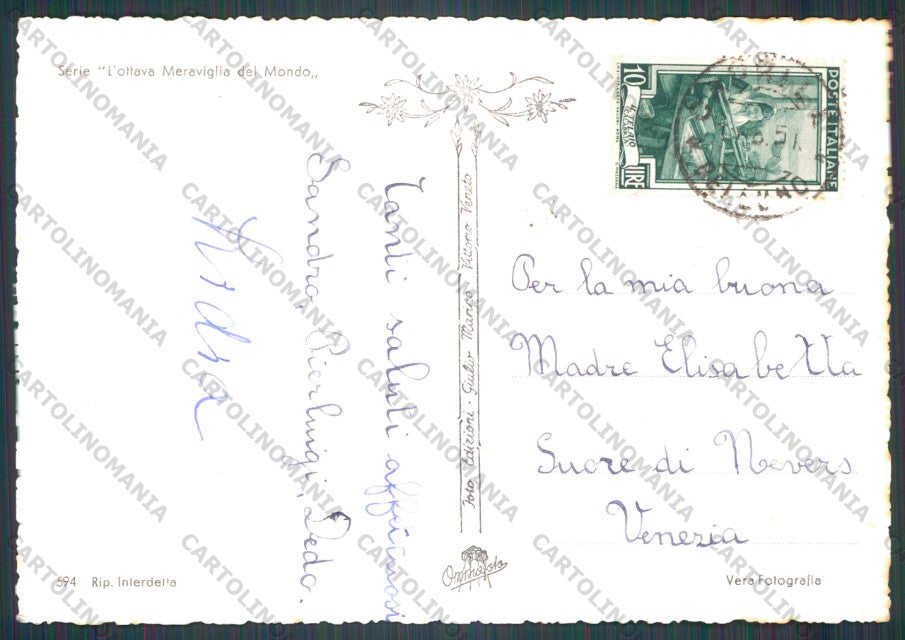 Serie "L'ottava Meraviglia del Mondo„
10 LIRE
IL TELAIO
POSTE ITALIANE
BELLUNO
Tanti saluti affettuosi
Sandro, Pierluigi, Dedo.
Foto Edizioni Giulio Marino Vittorio Veneto
Per la mia buona
Madre Elisabetta
Suore di Nevers
Venezia
594 Rip. Interdetta
Vera Fotografia
CARTOLINOMANIA